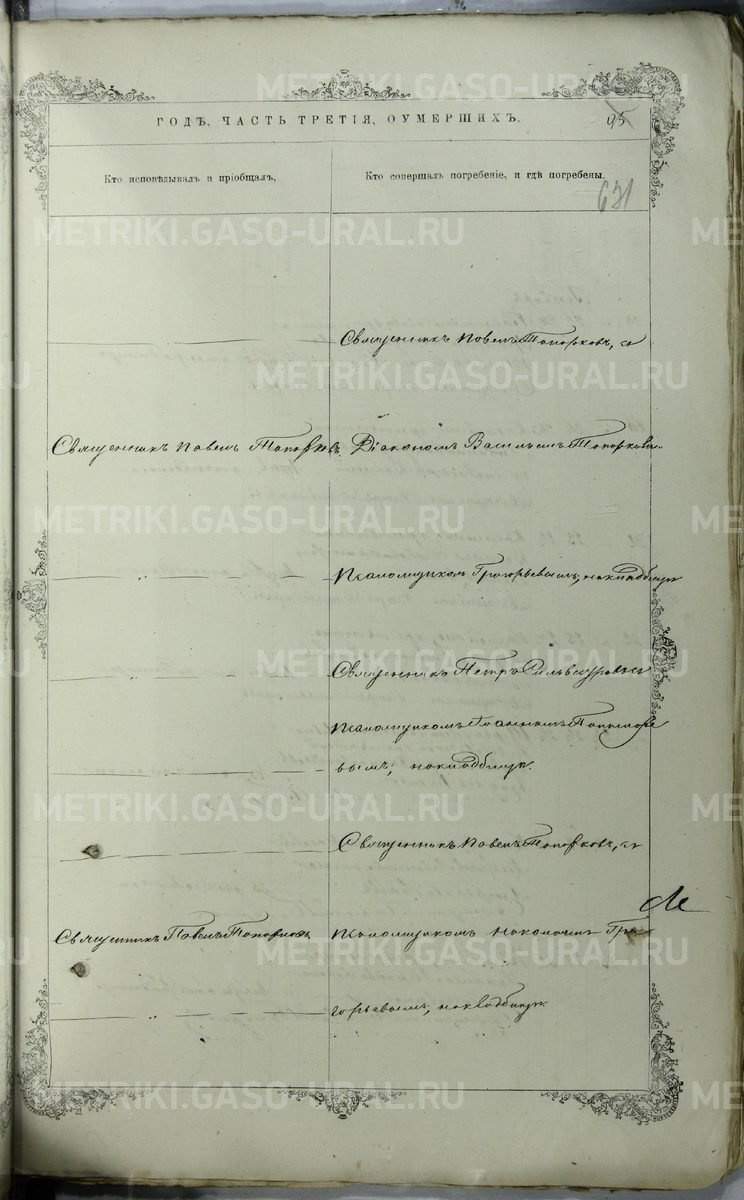 ГОДѢ, ЧАСТЬ ТРЕТІЯ, ОУМЕРШИХЪ.
95
Кто исповѣдывалъ и пріобщалъ.
Кто совершалъ погребеніе, и гдѣ погребены.
631
Священникъ Павелъ Топорковъ, съ
Священникъ Павелъ Топорковъ.
Діакономъ Василіемъ Топорковы-
Псаломщикомъ Григорьевымъ; на кладбищѣ
Священникъ Петръ съ
Псаломщикомъ Іоанномъ
вымъ; на кладбищѣ.
Священникъ Павелъ Топорковъ, съ
Священникъ Павелъ Топорковъ
Псаломщикомъ Николаемъ Гри-
горьевымъ; на кладбищѣ
METRIKI.GASO-URAL.RU